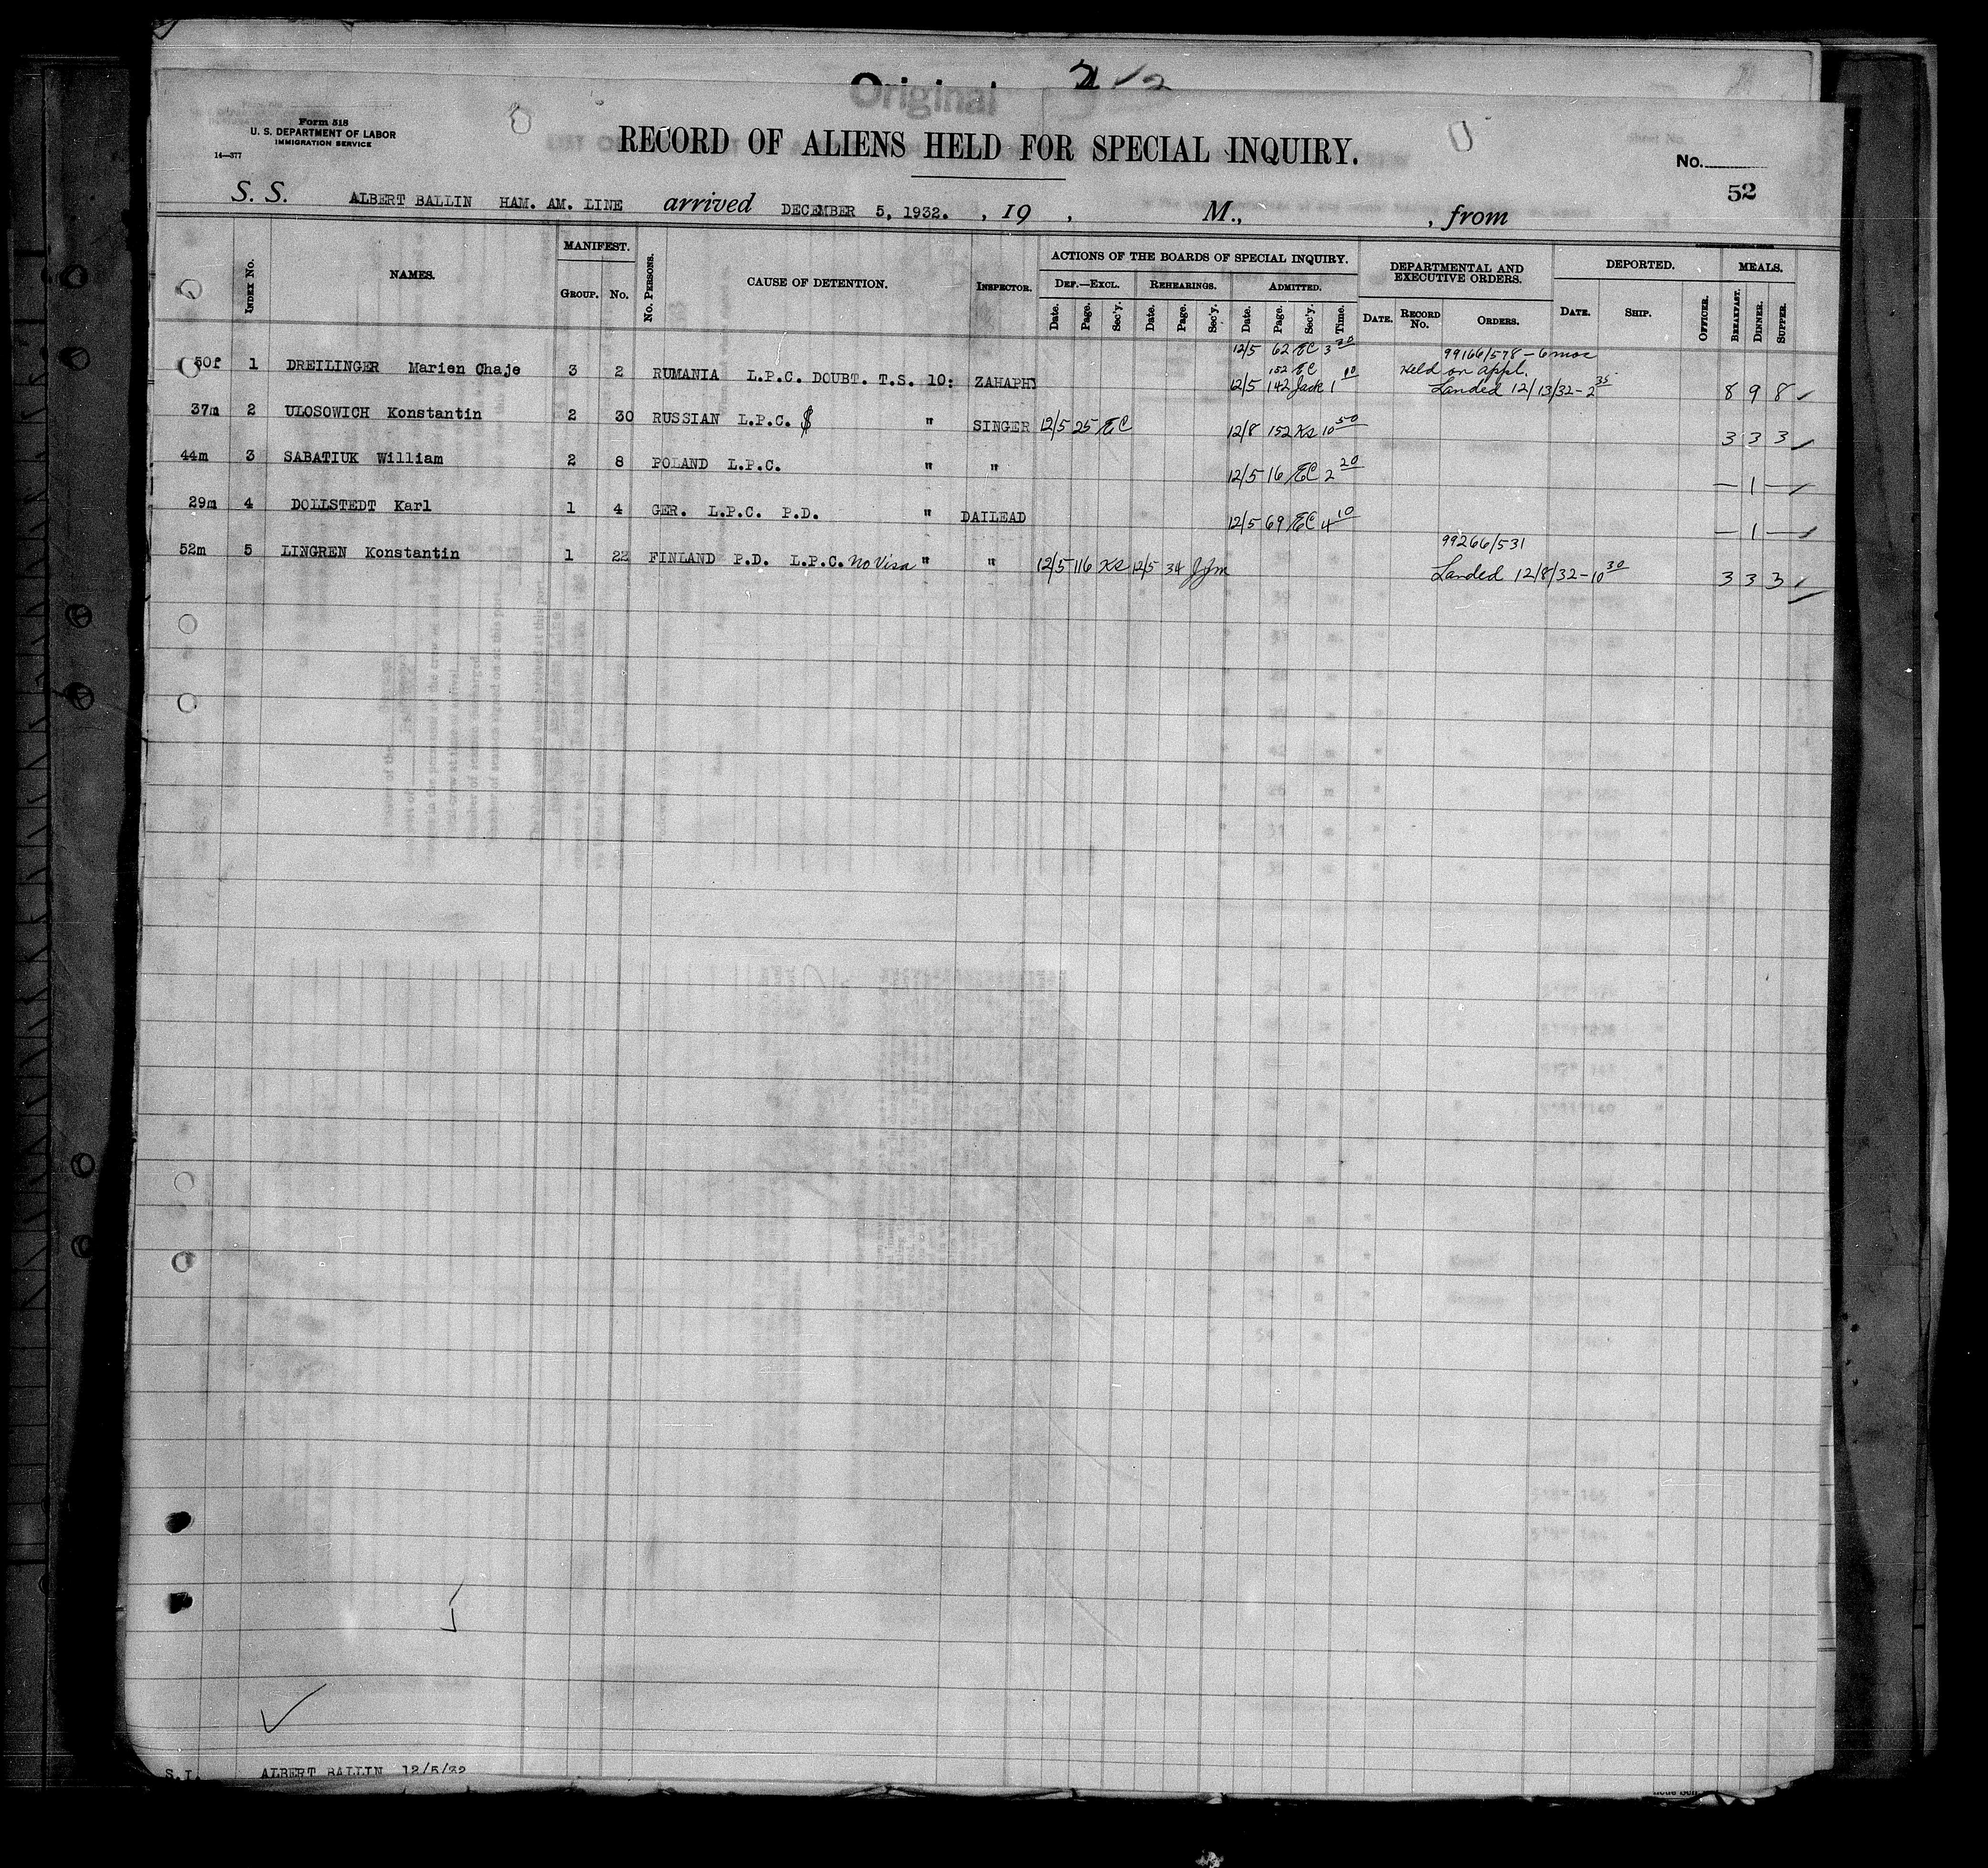 Original
Form 518
U. S. DEPARTMENT OF LABOR
IMMIGRATION SERVICE
14—377
RECORD OF ALIENS HELD FOR SPECIAL INQUIRY.
No.
52
S. S. ALBERT BALLIN HAM. AM. LINE arrived DECEMBER 5, 1932. , 19 , M., , from
INDEX No. NAMES. MANIFEST. GROUP. No. No. PERSONS. CAUSE OF DETENTION. INSPECTOR. ACTIONS OF THE BOARDS OF SPECIAL INQUIRY. DEPARTMENTAL AND EXECUTIVE ORDERS. DEPORTED. MEALS.
DEF.—EXCL. REHEARINGS. ADMITTED.
Date. Page. Sec'y. Date. Page. Sec'y. Date. Page. Sec'y. Time. DATE. RECORD No. ORDERS. DATE. SHIP. OFFICER. BREAKFAST. DINNER. SUPPER.
12/5 62 EC 3 30 99166/578 - 6 mos
152 EC Held on appl.
50f 1 DREILINGER Marien Chaje 3 2 RUMANIA L.P.C. DOUBT. T.S. 10: ZAHAPHY 12/5 142 Jack 1 10 Landed 12/13/32 - 2 35 8 9 8
37m 2 ULOSOWICH Konstantin 2 30 RUSSIAN L.P.C. $ " SINGER 12/5 25 EC 12/8 152 KS 10 50 3 3 3
44m 3 SABATIUK William 2 8 POLAND L.P.C. " " 12/5 16 EC 2 20 — 1 —
29m 4 DOLLSTEDT Karl 1 4 GER. L.P.C. P.D. " DAILEAD 12/5 69 EC 4 10 — 1 —
99266/531
52m 5 LINGREN Konstantin 1 22 FINLAND P.D. L.P.C. No Visa " " 12/5 116 KS 12/5 34 JJM Landed 12/8/32 - 10 30 3 3 3
S.I. ALBERT BALLIN 12/5/32